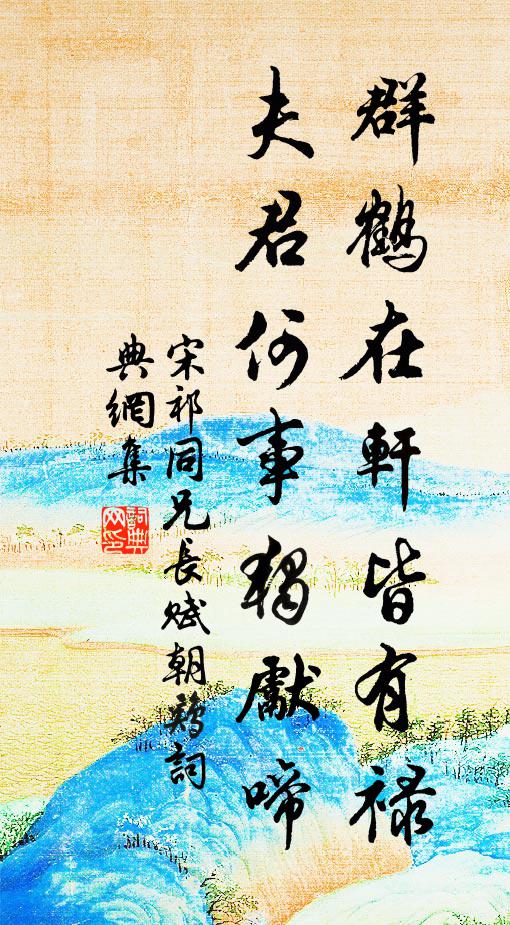 群鶴在軒皆有祿
夫君何事獨獻啼
宋祁同兄長賦朝鷄詞
典網集
詞典
网印